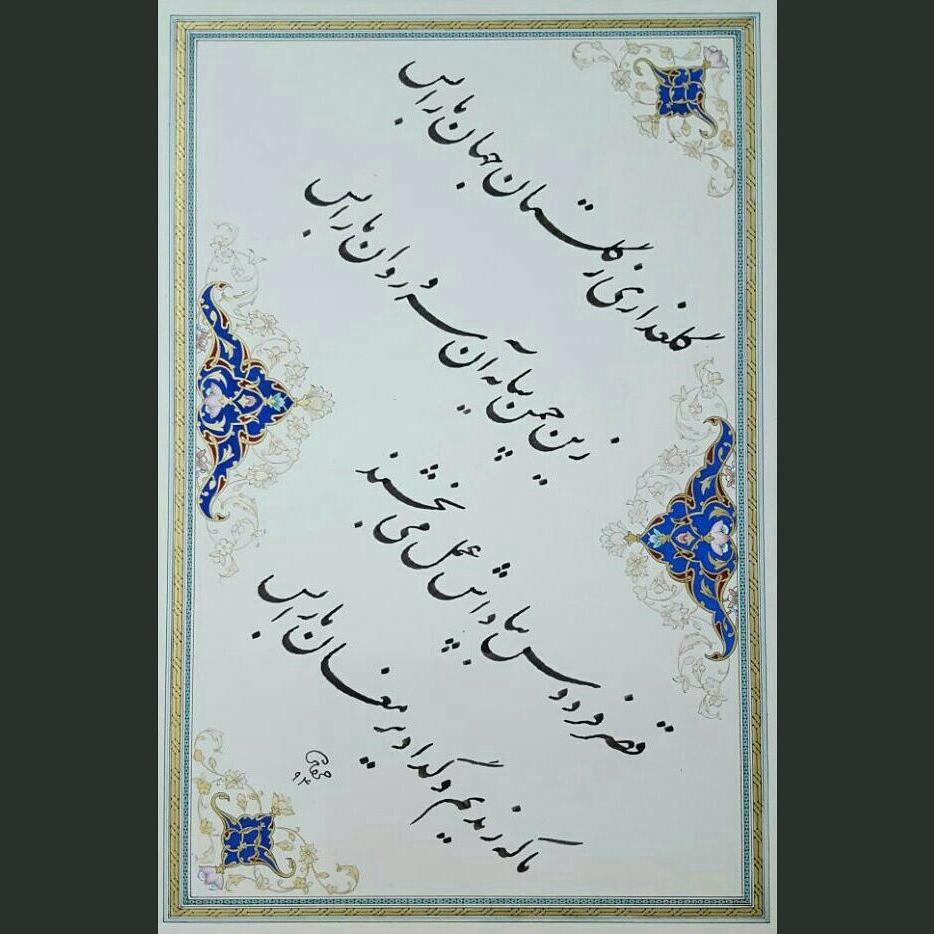 گلعذاری ز گلستان جهان ما را بس
زین چمن سایه آن سرو روان ما را بس
قصر فردوس بپاداش عمل می بخشند
ما که رندیم و گدا دیر مغان ما را بس
۹۴